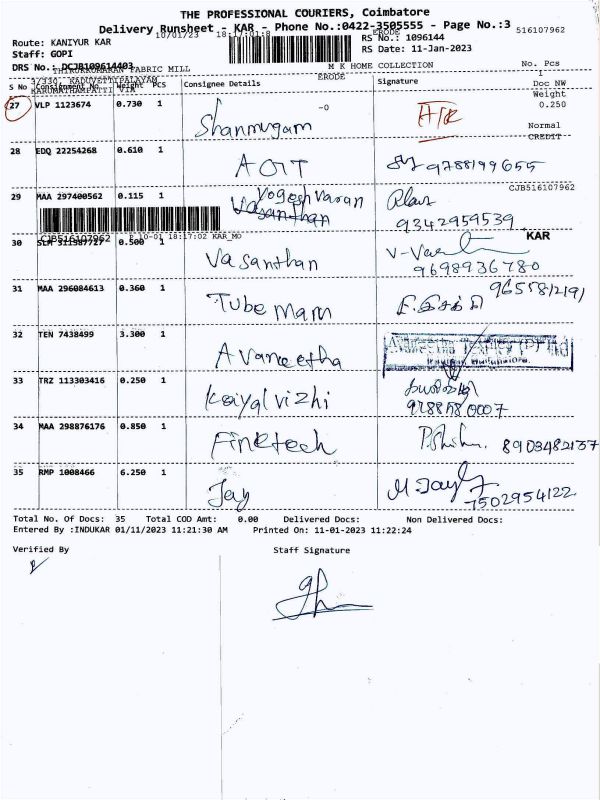 THE PROFESSIONAL COURIERS, Coimbatore
Delivery Runsheet - KAR - Phone No.:0422-3505555 - Page No.:3
10/01/23 18:17:01:8 ERODE 516107962
Route: KANIYUR KAR RS No.: 1096144
Staff: GOPI RS Date: 11-Jan-2023
DRS No.: DCJB109614403 M K HOME COLLECTION No. Pcs
THIRUKKUMARAN FABRIC MILL 1
3/330, KADUVETTIPALAYAM ERODE
KARUMATHAMPATTI VIA
S No Consignment No. Weight PCS Consignee Details Signature Doc NW
Weight
27 VLP 1123674 0.730 1 Shanmugam -0 0.250
Normal
CREDIT
28 EDQ 22254268 0.610 1 AOIT 9788199655
CJB516107962
29 MAA 297400562 0.115 1 Yogeshvaran
Vasanthan 9342959539
CJB516107962 P 10-01 18:17:02 KAR_MO KAR
30 0.500 1 Vasanthan 9698936780
31 MAA 296084613 0.360 1 Tube Mam 9655812191
32 TEN 7438499 3.300 1 Avaneetha
33 TRZ 113303416 0.250 1 Kayalvizhi
34 MAA 298876176 0.850 1 Finetech 8903482137
35 RMP 1008466 6.250 1 Jay M. Jay 7502954122
Total No. Of Docs: 35 Total COD Amt: 0.00 Delivered Docs: Non Delivered Docs:
Entered By :INDUKAR 01/11/2023 11:21:30 AM Printed On: 11-01-2023 11:22:24
Verified By Staff Signature